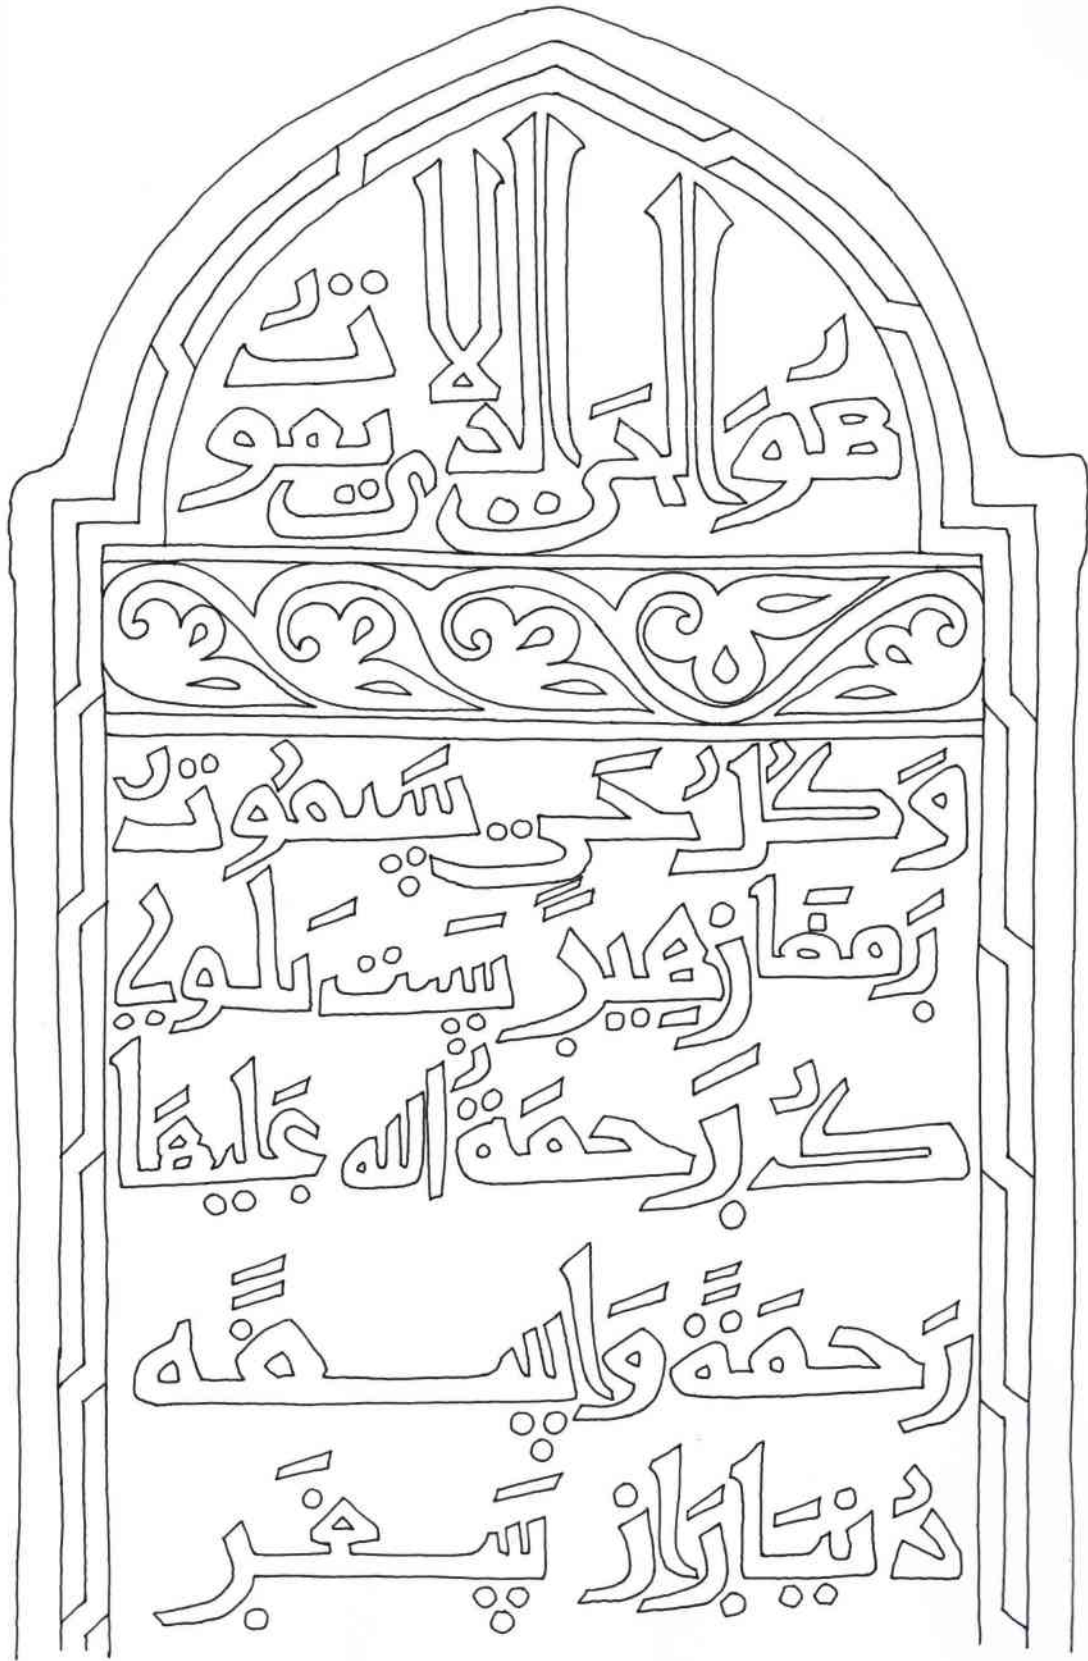 هُوَ الحَي الذي لا يموتُ
وَكُلُّ حَيٍ سَيمُوتُ
هير بلوي
رَحمَةُ الله عَليهَا
رَحمَةً وَاسعةً
دُنيَاران سَفَر